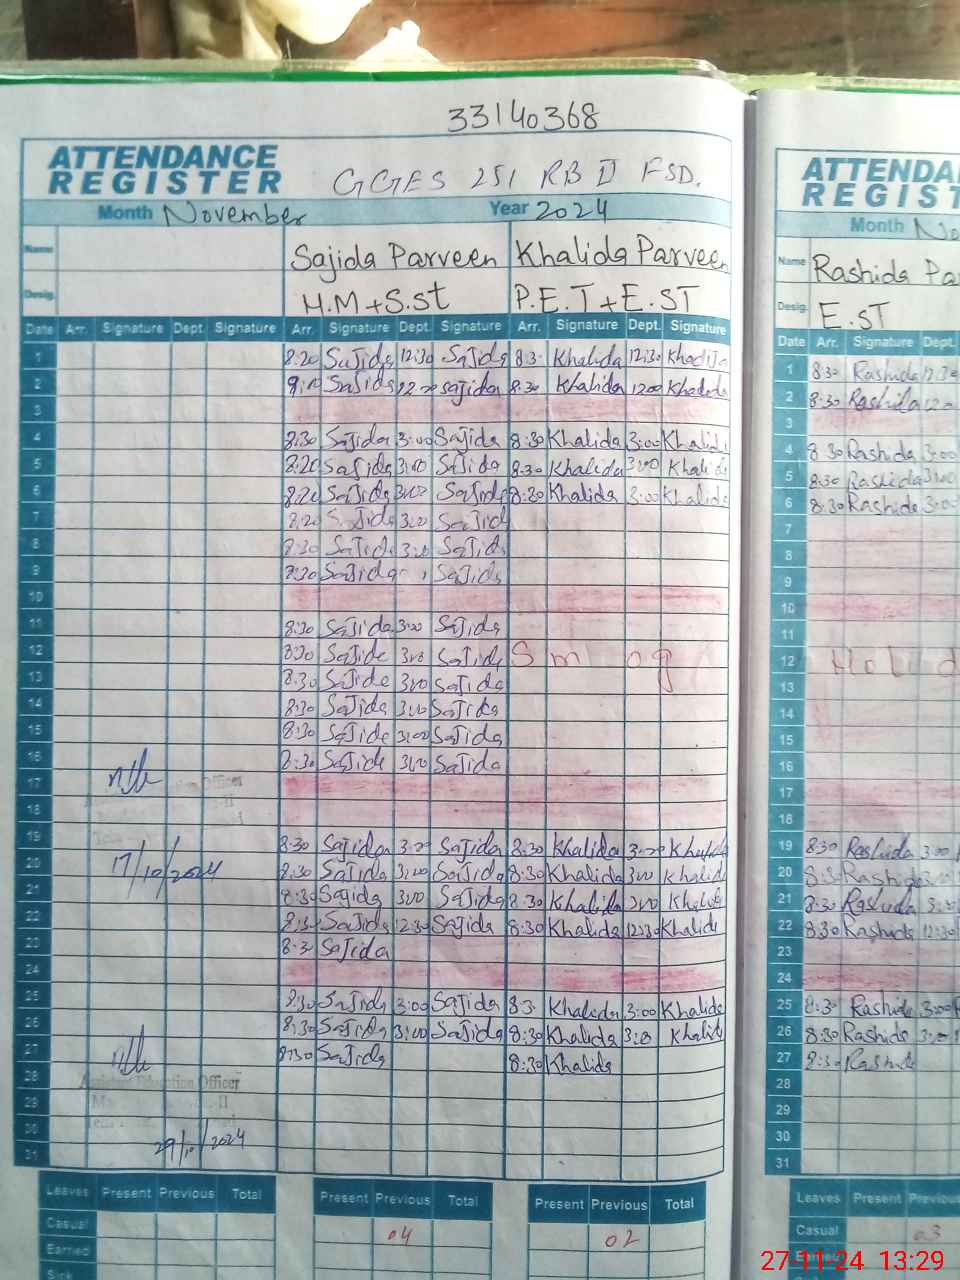 33140368
ATTENDANCE
REGISTER
GGES 251 RB II FSD.
Month November Year 2024
Name Sajida Parveen Khalida Parveen
Desig. H.M+S.st P.E.T+E.ST
Date Arr. Signature Dept. Signature Arr. Signature Dept. Signature Arr. Signature Dept. Signature
1 8:20 Sajida 12:30 Sajida 8:3 Khalida 12:30 Khadija
2 Sajida 12:00 Sajida 8:30 Khalida 1200 Khalida
3
4 8:30 Sajida 3:00 Sajida 8:30 Khalida 3:00 Khalid
5 8:20 Sajida 3:00 Sajida 8:30 Khalida 3:00 Khalida
6 8:20 Sajida 3:00 Sajida 8:30 Khalida 3:00 Khalida
7 8:20 Sajida 3:00 Sajid
8 8:30 Sajida 3:00 Sajida
9 8:30 Sajida Sajida
10
11 8:30 Sajida 3:00 Sajida
12 8:30 Sajida 3:00 Sajida Smog
13 8:30 Sajida 3:00 Sajida
14 8:30 Sajida 3:00 Sajida
15 8:30 Sajida 3:00 Sajida
16 8:30 Sajida 3:00 Sajida
17 Officer
18 -II
19 8:30 Sajida 3:00 Sajida 8:30 Khalida 3:00 Khalida
20 17/10/2024 8:30 Sajida 3:00 Sajida 8:30 Khalida 3:00 Khalid
21 8:30 Sajida 3:00 Sajida 8:30 Khalida 3:00 Khalida
22 8:30 Sajida 12:30 Sajida 8:30 Khalida 12:30 Khalida
23 8:3 Sajida
24
25 8:30 Sajida 3:00 Sajida 8:3 Khalida 3:00 Khalida
26 8:30 Sajida 3:00 Sajida 8:30 Khalida 3:00 Khalida
27 8:30 Sajida 8:30 Khalida
28 Assistant Education Officer
29 -II
30 29/10/2024
31
Leaves Present Previous Total Present Previous Total Present Previous Total
Casual 04 02
Earned
Sick
ATTENDA
REGIST
Month No
Name Rashida Pa
Desig. E.ST
Date Arr. Signature Dept.
1 8:30 Rashida 12:30
2 8:30 Rashida 1200
3
4 8:30 Rashida 3:00
5 8:30 Rashida 3:00
6 8:30 Rashida 3:00
7
8
9
10
11
12 Holid
13
14
15
16
17
18
19 8:30 Rashida 3:00
20 8:3 Rashida 3:00
21 8:30 Rashida 3:00
22 8:30 Rashida 12:30
23
24
25 8:3 Rashida 3:00
26 8:30 Rashida 3:00
27 8:3 Rashida
28
29
30
31
Leaves Present Previous
Casual 03
Earned
27-11-24 13:29